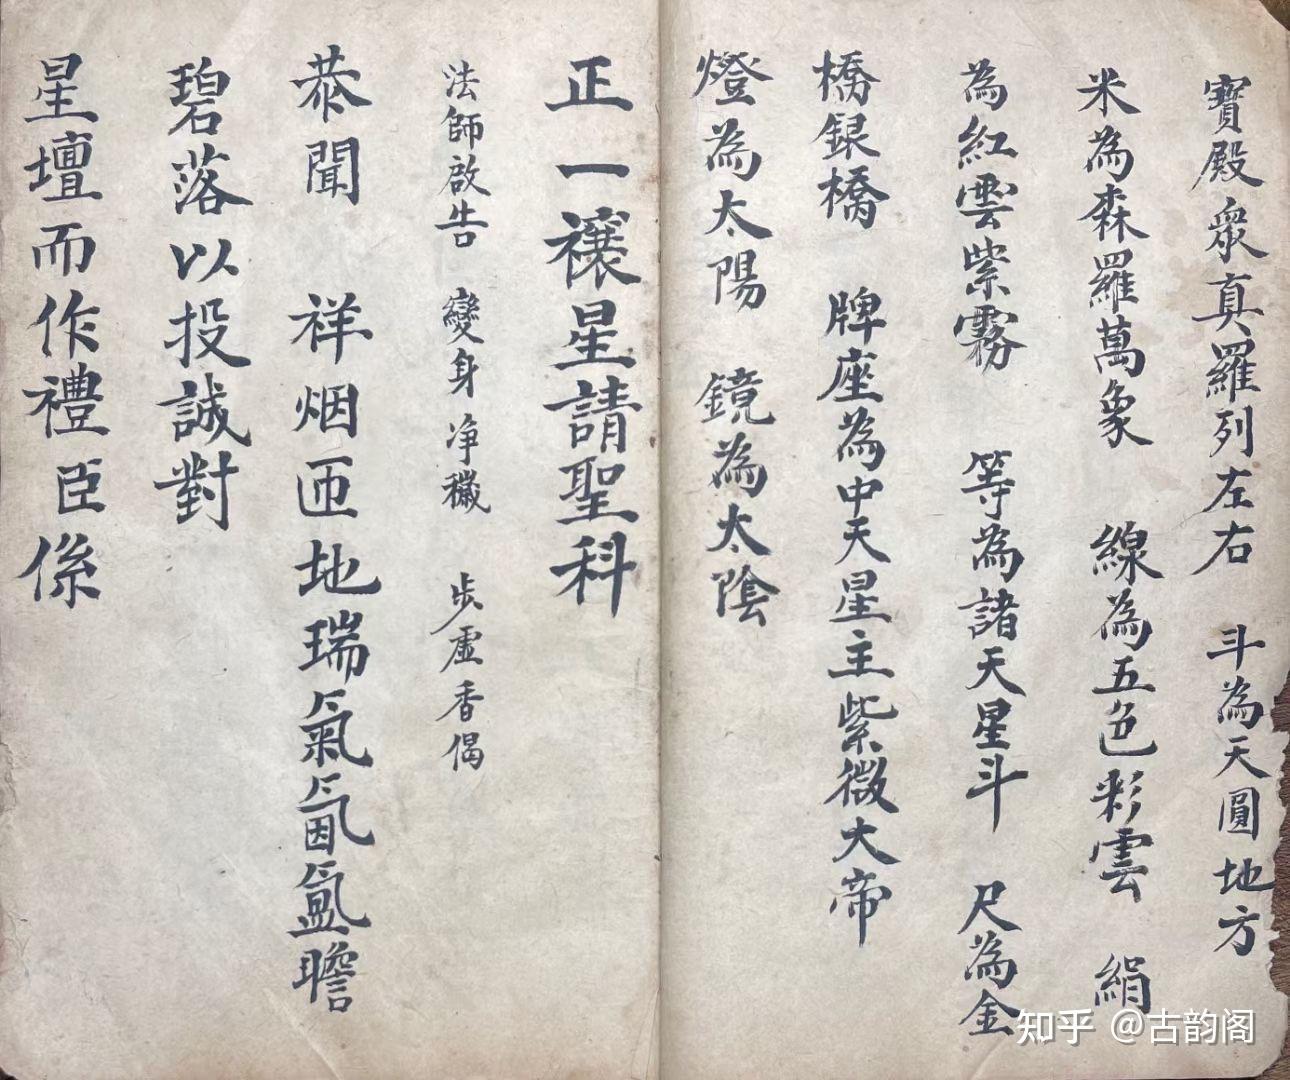 寶殿衆真羅列左右　斗為天圓地方
米為森羅萬象　線為五色彩雲　絹
為紅雲紫霧　等為諸天星斗　尺為金
橋銀橋　牌座為中天星主紫微大帝
燈為太陽　鏡為太陰
正一禳星請聖科
法師啟告　變身净穢　步虛香偈
恭聞　祥烟匝地瑞氣氤氳瞻
碧落以投誠對
星壇而作禮臣係
知乎 @古韵阁